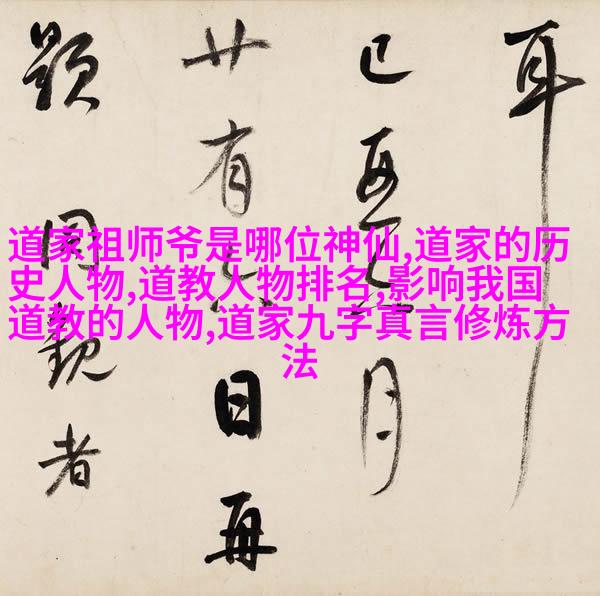 道家祖师爷是哪位神仙,道家的历
史人物,道教人物排名,影响我国
道教的人物,道家九字真言修炼方
法
耳
已 月
廿有 日再
題 同觀者